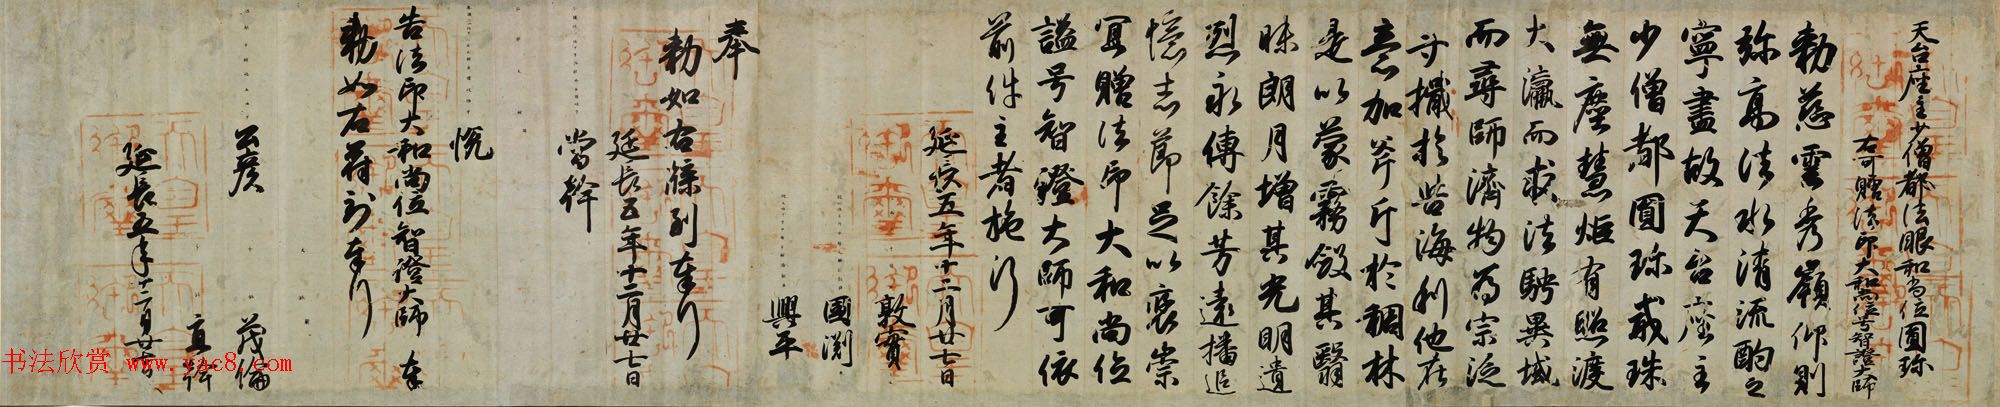 天台座主少僧都法眼和尚位圓珎
右可贈法印大和尚位号智證大師
勅慈雲秀嶺仰則
弥高法水清流酌之
寧盡故天台座主
少僧都圓珎戒珠
無塵慧炬有照渡
大瀛而求法騁異域
而尋師濟物為宗泛
寸攕於苦海利他在
意加斧斤於稠林
是以蒙霧斂其翳
昧朗月增其光明遺
烈永傳餘芳遠播追
憶志節足以褒崇
宜贈法印大和尚位
謚号智證大師可依
前件主者施行
延長五年十二月廿七日
敦實
國淵
興平
奉
勅如右牒到奉行
延長五年十二月廿七日
當幹
恱
告法印大和尚位智證大師奉
勅如右符到奉行
茂倫
公彦
直幹
延長五年十二月廿七日
书法欣赏 www.yac8.com